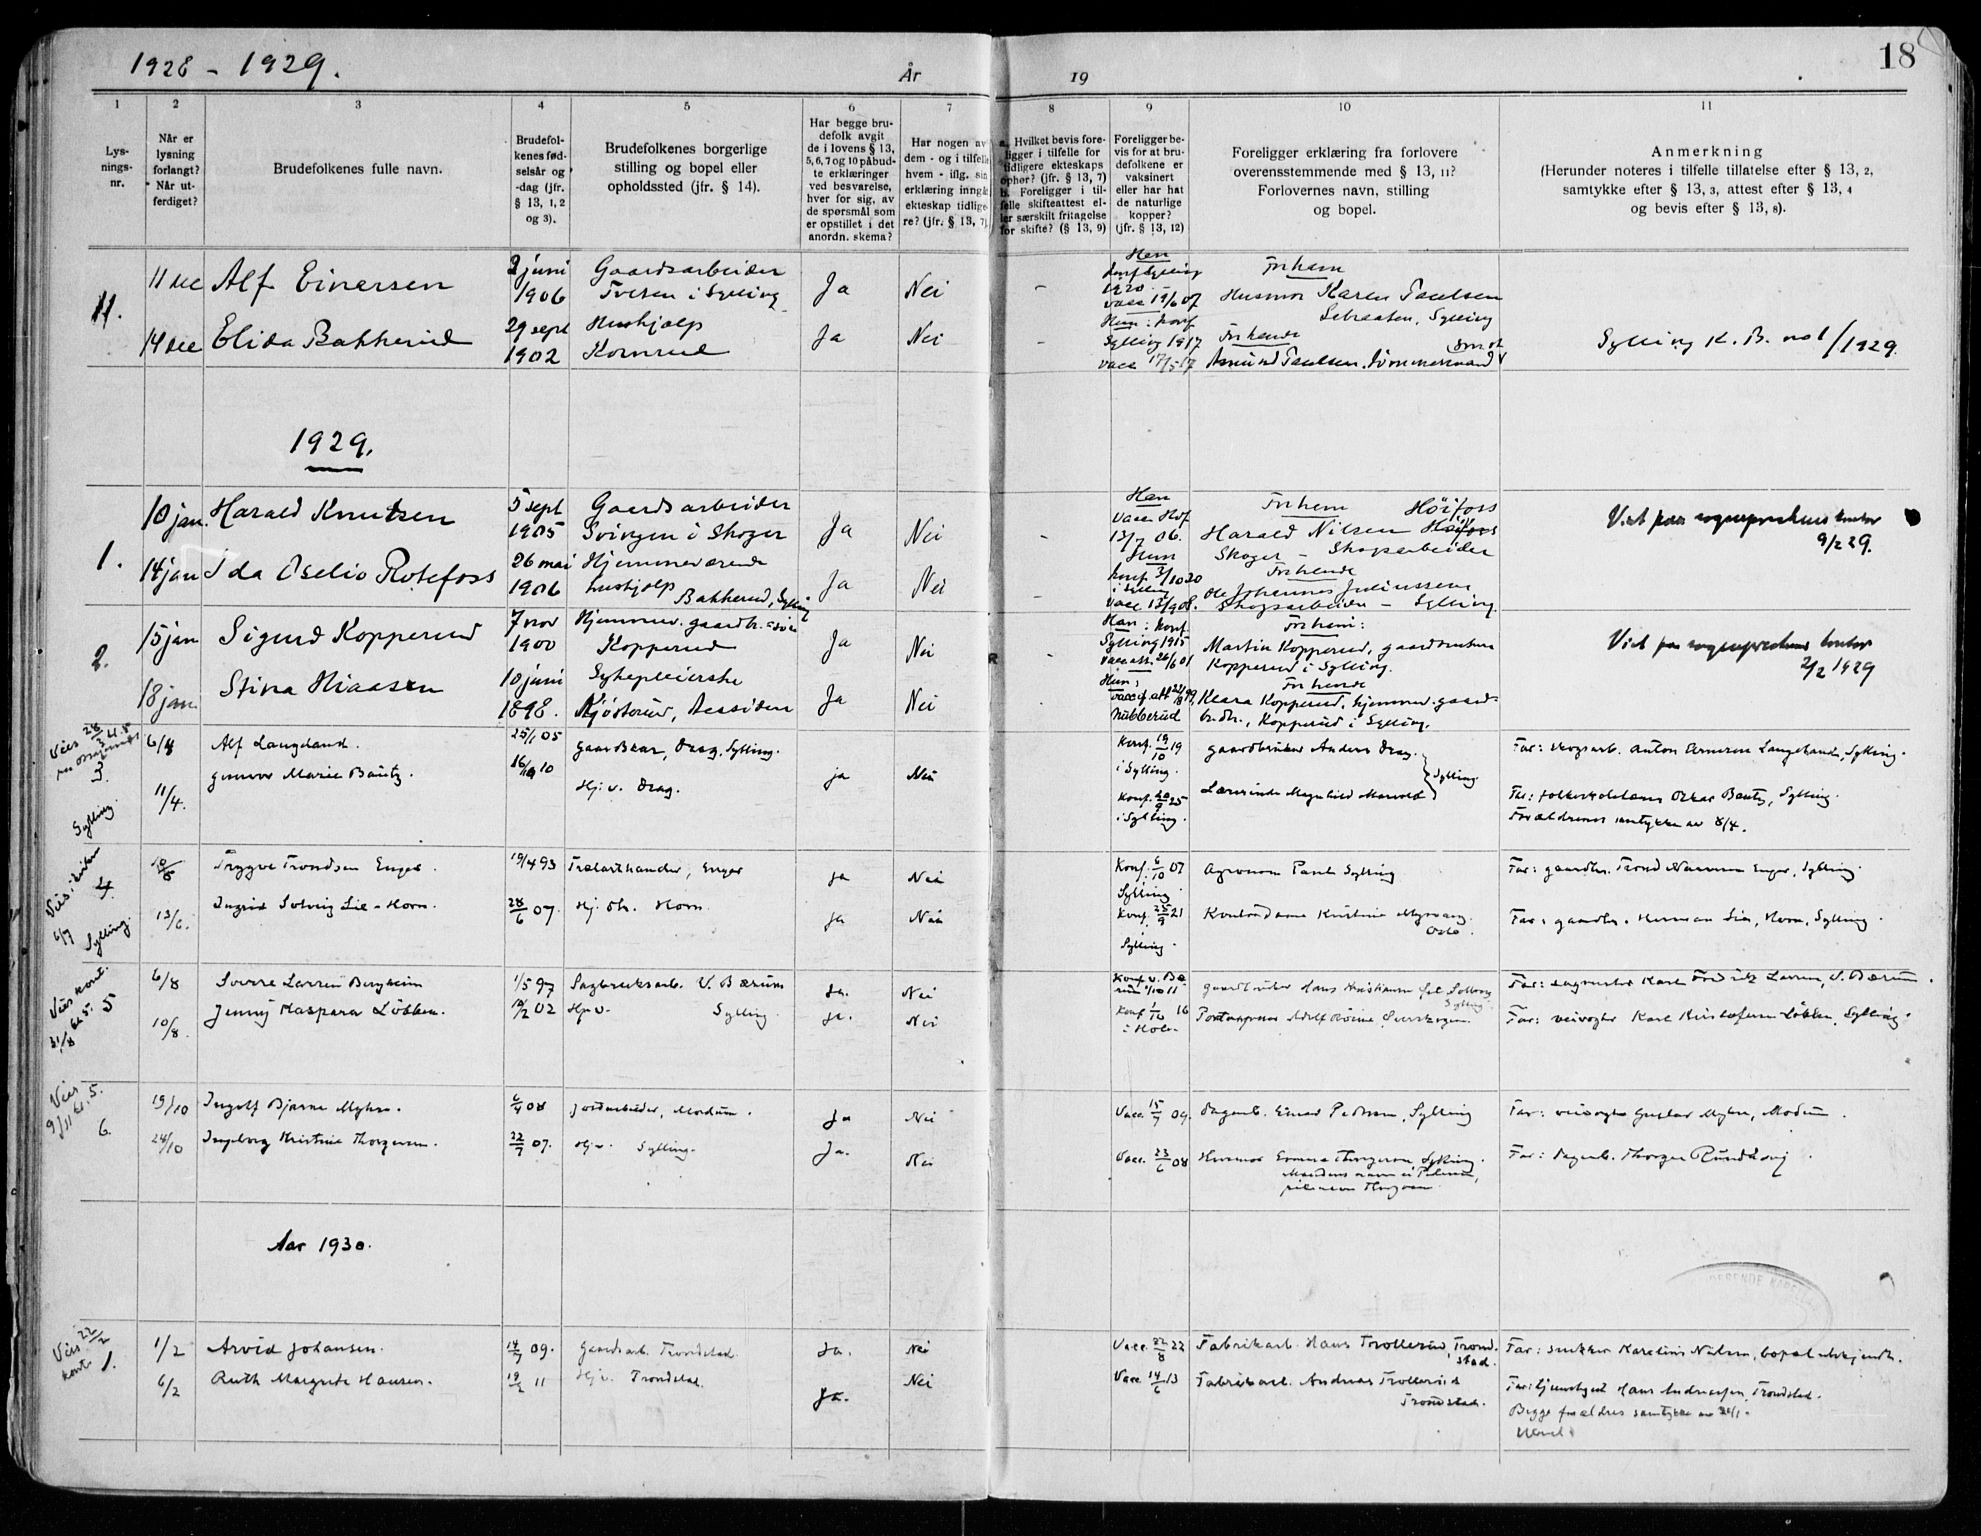 1928 - 1929.
År
19
18
1
2
3
4
5
6
7
8
9
10
11
Lys-
nings-
nr.
Når er
lysning
forlangt?
Når ut-
ferdiget?
Brudefolkenes fulle navn.
Brudefol-
kenes fød-
selsår og
-dag (jfr.
§ 13, 1, 2
og 3).
Brudefolkenes borgerlige
stilling og bopel eller
opholdssted (jfr. § 14).
Har begge bru-
defolk avgit
de i lovens § 13,
5, 6, 7 og 10 påbud-
te erklæringer
ved besvarelse,
hver for sig, av
de spørsmål som
er opstillet i det
anordn. skema?
Har nogen av
dem - og i tilfelle
hvem - iflg. sin
erklæring inngåt
ekteskap tidlige-
re? (jfr. § 13, 7).
a. Hvilket bevis fore-
ligger i tilfelle for
tidligere ekteskaps
ophør? (jfr. § 13, 7)
b. Foreligger i til-
felle skifteattest el-
ler særskilt fritagelse
for skifte? (§ 13, 9)
Foreligger be-
vis for at bru-
defolkene er
vaksinert
eller har hat
de naturlige
kopper?
(jfr. § 13, 12)
Foreligger erklæring fra forlovere
overensstemmende med § 13, 11?
Forlovernes navn, stilling
og bopel.
Anmerkning
(Herunder noteres i tilfelle tillatelse efter § 13, 2,
samtykke efter § 13, 3, attest efter § 13, 4
og bevis efter § 13, 8).
11.
11 dec
Alf Einersen
2 juni
1906
Gaardsarbeider
Tveten i Sylling
Ja
Nei
-
Han
konf Sylling
1920
vacc 15/6 07
For ham
Husmor Karen Paulsen
Sylling
14 dec
Elida Bakkerud
29 sept
1902
Hushjælp
Kornrud
Ja
Nei
Hun: konf
Sylling 1917
vacc 17/5 17
For hende
Amund Paulsen
Sylling K. B. no 1/1929.
1929.
1.
10 jan.
Harald Knutsen
5 sept
1905
Gaardsarbeider
Svingen i Skoger
Ja
Nei
-
Han
vacc Hof
13/7 06.
For ham
Høifoss
Harald Nilsen Høifoss
Skoger - Skogsarbeider
Viet paa sogneprestens kontor
9/2 29.
14 jan
Ida Oselio Rotefoss
26 mai
1906
Hjemmeværende
hushjælp
Bakkerud, Sylling
Ja
Nei
-
Hun
konf 3/10 20
i Sylling
vacc 13/9 08.
For hende
Ole Johannes Juliussen
Skogsarbeider - Sylling.
2.
15 jan
Sigurd Kopperud
7 nov
1900
Hjemmev. gaardbr. søn
Kopperud
Ja
Nei
Han: konf
Sylling 1915
vacc att. 26/6 01
For ham:
Martin Kopperud, gaardbruker
Kopperud i Sylling.
Viet paa sogneprestens kontor
2/2 1929
18 jan.
Stina Hiaasen
10 juni
1898.
Sykepleierske
Kjøsterud, Aassiden
Ja
Nei
Hun:
For hende
Klara Kopperud, hjemmev. gaard-
br. dtr., Kopperud i Sylling.
3.
Sylling.
6/4
Alf Langeland.
25/1 05
gaardskar, Drag, Sylling.
ja
Nei
Konf. 19/10 19
i Sylling.
gaardbruker Anders Drag.
Sylling
Far: skogsarb. Anton Langeland, Sylling.
11/4.
Gunvor Marie Bautz.
10
Hj. v. Drag.
Konf. 20/9 25
i Sylling.
Lærerinde Magnhild
Far: folkeskolelærer Oskar Bautz, Sylling.
Forældrenes samtykke av 8/4.
4.
6/7
Sylling.
10/6
Trygve Trondsen Enger.
19/4 93
Trælasthandler, Enger
ja
Nei
Konf. 6/10 07
Sylling
Agronom Paul Sylling
Far: gaardbr. Trond Enger, Sylling.
13/6.
Ingrid Solveig Lie-Horn.
28/6 07.
Hj. dtr. Horn.
ja
Nei
Konf. 25/9 21
Sylling.
Kontordame Kristine Myrvang
Oslo.
Far: gaardbr. Herman Lie, Horn, Sylling.
Viet kont.
31/8 kl. 5.
5
6/8
Sverre Larsen Bergheim
1/5 97
Sagbruksarb. V. Bærum
Ja.
Nei
Konf. v. Bæ-
rum 1/10 11
gaardbruker Hans Kristiansen
Sylling
Far: Karl Fredrik Larsen, V. Bærum.
10/8.
Jenny Kaspara Løbben.
10/2 02
Hj. v. Sylling
ja.
Nei
Konf 1/10 16
i Hole
Adolf
Far: veivogter Karl Kristofersen Løbben, Sylling.
Viet
9/11 kl. 5.
6.
19/10
Ingolf Bjarne Myhre.
08
Jordarbeider, Modum.
Ja
Nei
Vacc. 15/7 09.
dagarb. Einar Pedersen, Sylling
Far: veivogter Gustav Myhre, Modum.
24/10
Ingeborg Kristine Thorgersen.
22/7 07.
Hj. v. Sylling.
Ja.
Nei
Vacc. 23/6 08
Husmor Emma Thorgersen, Sylling.
Far: dagarb. Thorger Rundhovj.
Aar 1930.
Viet 22/2
kont.
1.
1/2
Arvid Johansen.
14/7 09.
Gaardsarb. Trondstad.
Ja.
Nei
Vacc. 22/8 22
Fabrikarb. Hans Trollerud, Trond-
stad.
Far: snekker Karelius Nielsen, bopel ubekjendt.
6/2
Ruth Margrete Hansen.
19/2 11
Hj. v. Trondstad.
ja.
Nei
Vacc 14/6 13
Fabrikarb. Andreas Trollerud
Trondstad.
Hans Andreassen, Trondstad.
Begge forældres samtykke av